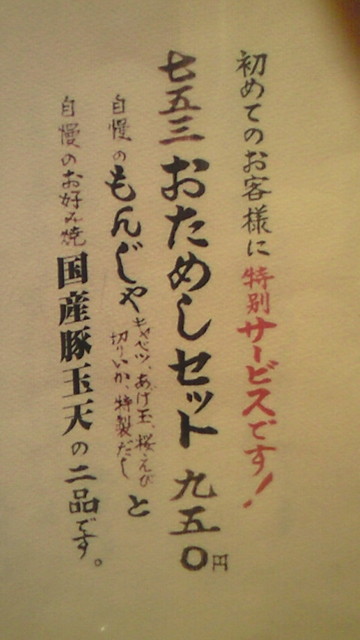 初めてのお客様に特別サービスです！
七五三おためしセット九五〇円
自慢のもんじゃキャベツ、あげ玉、桜えび
切りいか、特製だしと
自慢のお好み焼国産豚玉天の二品です。